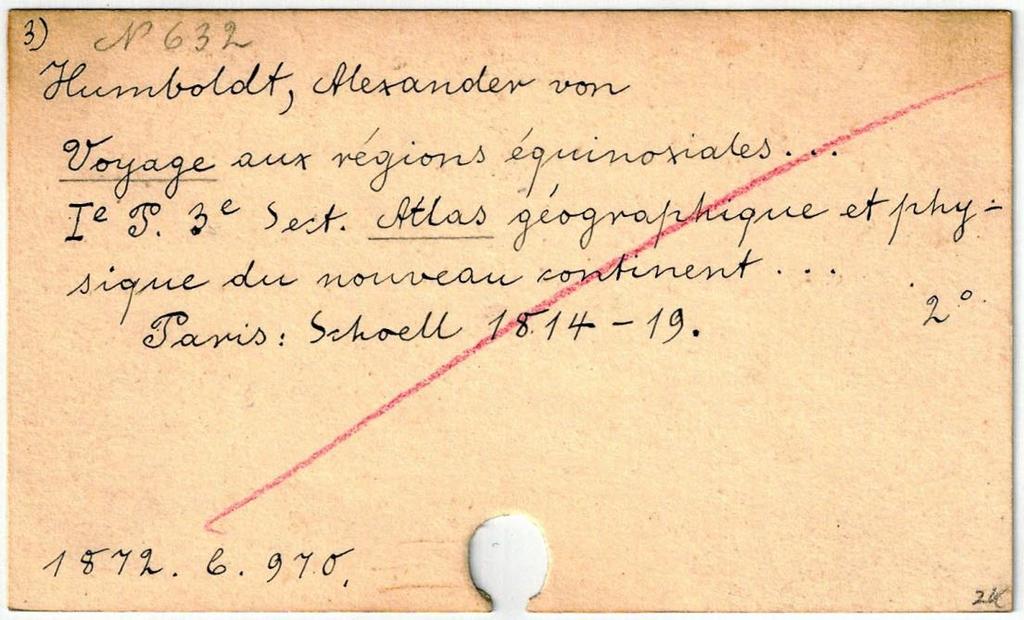 3) N 632
Humboldt, Alexander von
Voyage aux régions équinoxiales...
Iᵉ P. 3ᵉ Sect. Atlas géographique et phy-
sique du nouveau continent...
Paris: Schoell 1814-19. 2°
1872. C. 970.